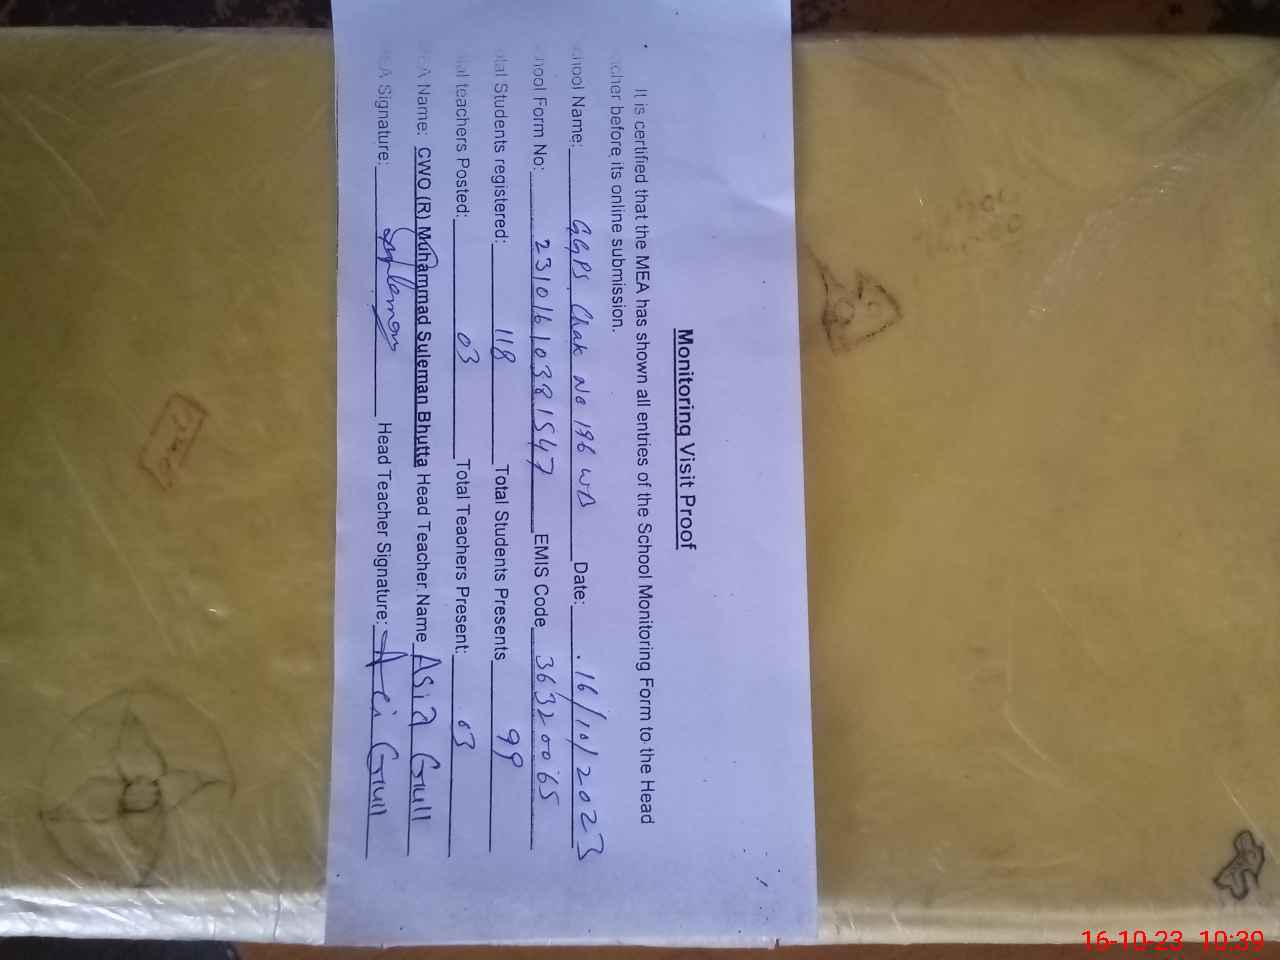 Monitoring Visit Proof
It is certified that the MEA has shown all entries of the School Monitoring Form to the Head
cher before its online submission.
hool Name: GGPS Chak No 196 WB Date: 16/10/2023
hool Form No: 23101610381547 EMIS Code 36320065
tal Students registered: 118 Total Students Presents 99
tal teachers Posted: 03 Total Teachers Present: 03
A Name: CWO (R) Muhammad Suleman Bhutta Head Teacher Name Asia Gull
A Signature: Head Teacher Signature: Gull
16-10-23 10:39